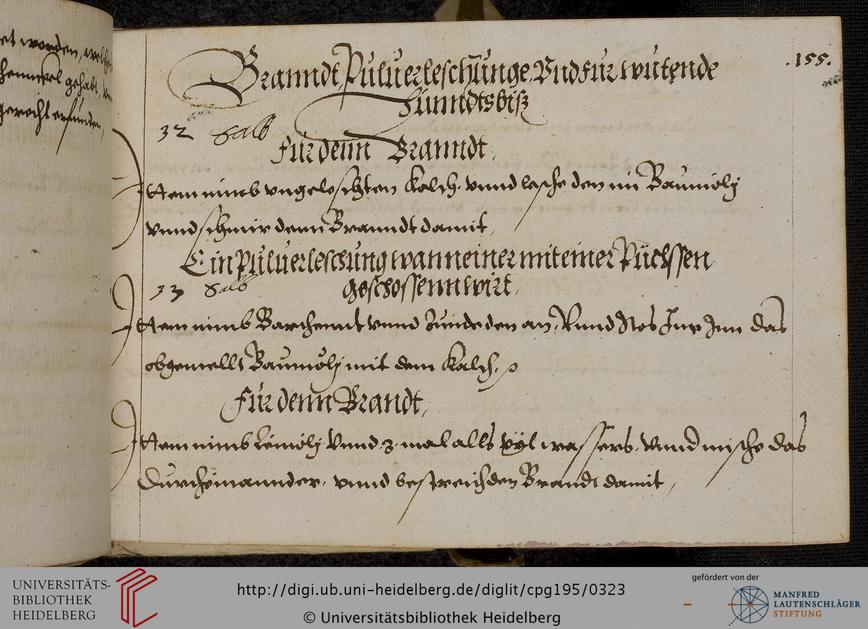 et worden, welche
gehabt,
gerecht erfunden,
.155.
Branndt Puluerleschunge Vnd für wütende
Hunndtsbiß
32 Salb
für denn Branndt,
Ittem nimb vngeleschten Kalch, vnnd lasche den inn Baumölj
vnnd schmir denn Branndt damit,
Ein Puluerleschung wann einer mit einer Püchssen
33 Salb geschossenn wirt,
Ittem nimb Barchennt vnnd Zünde den an, Vnnd das Inn das
obgemellt Baumölj mit dem Kalch,
für denn Brandt,
Ittem nimb Leinölj vnnd 3 mal alls vyl wassers, vnnd mische das
Durcheinannder, vnnd bestreich den Brandt damit,
UNIVERSITÄTS-
BIBLIOTHEK
HEIDELBERG
http://digi.ub.uni-heidelberg.de/diglit/cpg195/0323
© Universitätsbibliothek Heidelberg
gefördert von der
MANFRED
LAUTENSCHLÄGER
STIFTUNG